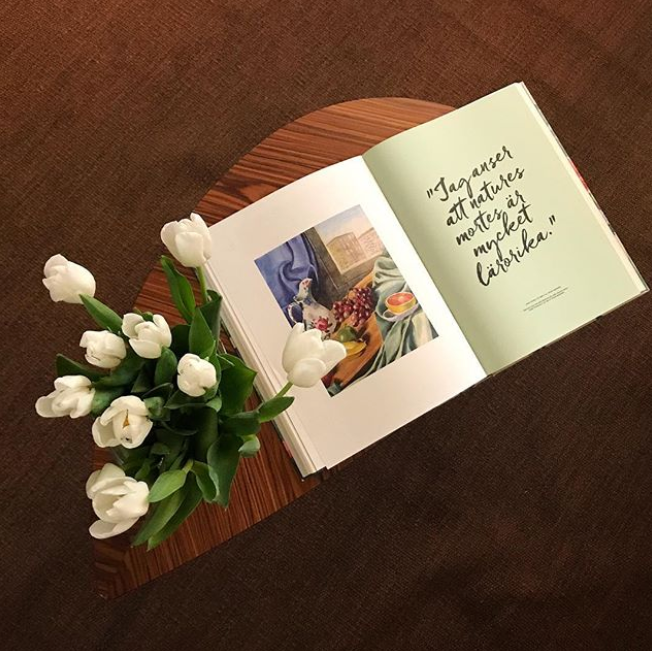 "Jag anser
att natures
mortes är
mycket
lärorika."